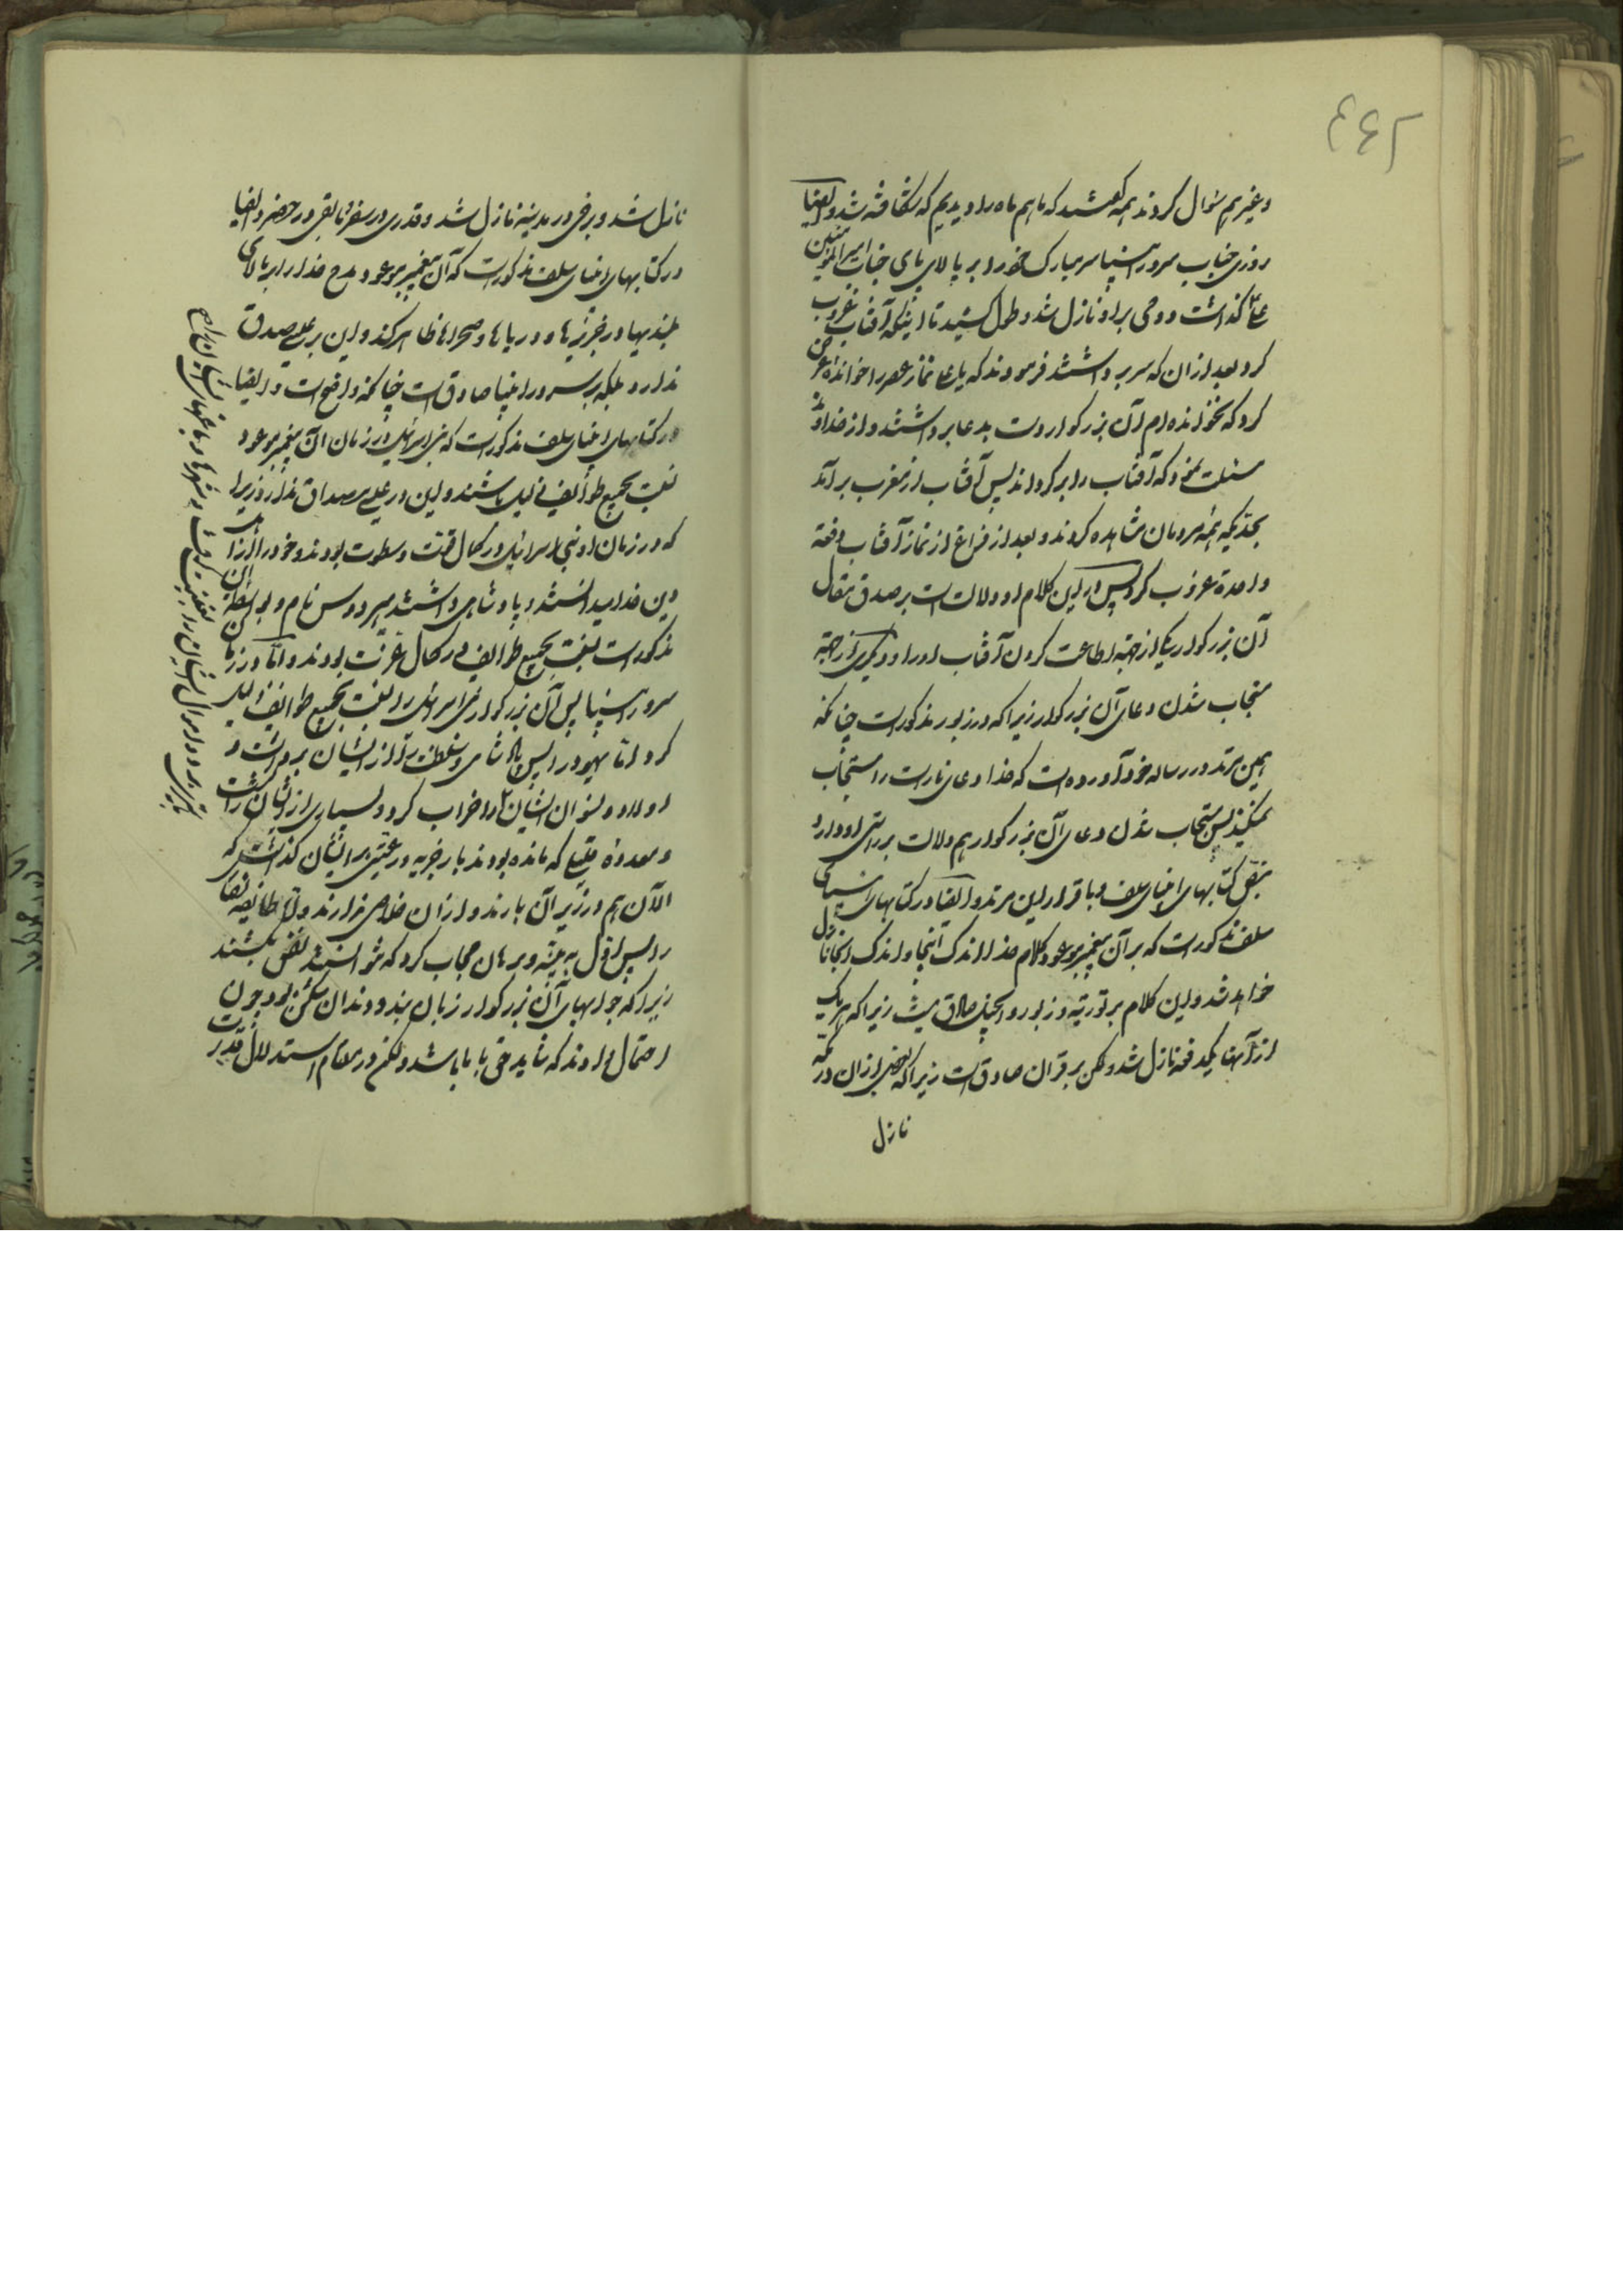 وغیرهم سؤال کردند همه گفتند که ما هم ماه را دیدیم که شکافته شد وایضا
روزی جناب سرور انبیا سر مبارک خود را بر بالای پای جناب امیرالمؤمنین
علی گذاشت ووحی بر او نازل شد وطول کشید تا اینکه آفتاب غروب
کرد بعد از آن که سر برداشتند فرمودند که یا علی نماز عصر را خوانده عرض
کرد که نخوانده ام آن بزرکوار دست بدعا برداشتند واز خداوند
مسئلت نمود که آفتاب را برکرداند پس آفتاب از مغرب برآمد
بحدیکه همه مردمان مشاهده کردند وبعد از فراغ از نماز آفتاب دفعة
واحدة غروب کرد پس در این کلام او دو دلالت است بر صدق مقال
آن بزرکوار یکی از جهة اطاعت کردن آفتاب او را ودیکری از جهة
مستجاب شدن دعای آن بزرکوار زیرا که در زبور مذکور است چنانکه
همین مرتد در رساله خود آورده است که خدا دعای ناراست را مستجاب
نمیکند پس مستجاب شدن دعای آن بزرکوار هم دلالت بر راستی او دارد
بنقل کتابهای انبیای سلف وباقرار این مرتد وایضا در کتابهای انبیای
سلف مذکور است که بر آن پیغمبر موعود کلام خدا اندک اینجا واندک آنجا نازل
خواهد شد واین کلام بر توریة وزبور وانجیل صادق نیست زیرا که هر یک
از آنها یکدفعه نازل شد ولکن بر قرآن صادق است زیرا که بعضی از آن در مکه
نازل
نازل شد وبرخی در مدینه نازل شد وقدری در سفر ومابقی در حضر وایضا
در کتابهای انبیای سلف مذکور است که آن پیغمبر موعود مدح خدا را بر بالای
بلندیها در جزیرها ودریاها وصحراها ظاهر کند واین بر عیسی صدق
ندارد بلکه بر سرور انبیا صادق است چنانکه واضح است وایضا
در کتابهای انبیای سلف مذکور است که بنی اسرائیل در زمان آن پیغمبر موعود
نسبت بجمیع طوایف ذلیل باشند واین در عیسی مصداق ندارد زیرا
که در زمان او بنی اسرائیل در کمال قوت وسطوت بودند وخود را
دین خدا میدانستند وپادشاهی داشتند هیرودوس نام
مذکور است نسبت بجمیع طوایف در کمال عزت بودند واما در زمان
سرور انبیا پس آن بزرکوار بنی اسرائیل را نسبت بجمیع طوایف ذلیل
کرد اما یهود را پس پادشاهی وسلطنت را از ایشان برداشت و
اولاد ونسوان ایشان را خراب کرد وبسیاری از ایشان را کشت
ومعدود قلیلی که مانده بودند بار جزیه ورعیتی بر ایشان گذاشت که
الآن هم در زیر آن بارند واز آن خلاصی ندارند واما طایفه نصارا
را پس اول به بینه وبرهان مجاب کرد که نتوانستند نفس بکشند
زیرا که جوابهای آن بزرکوار زبان بند ودندان شکن بود وچون
احتمال دادند که شاید حق با ما باشد ولکن در مقام استدلال قدرت